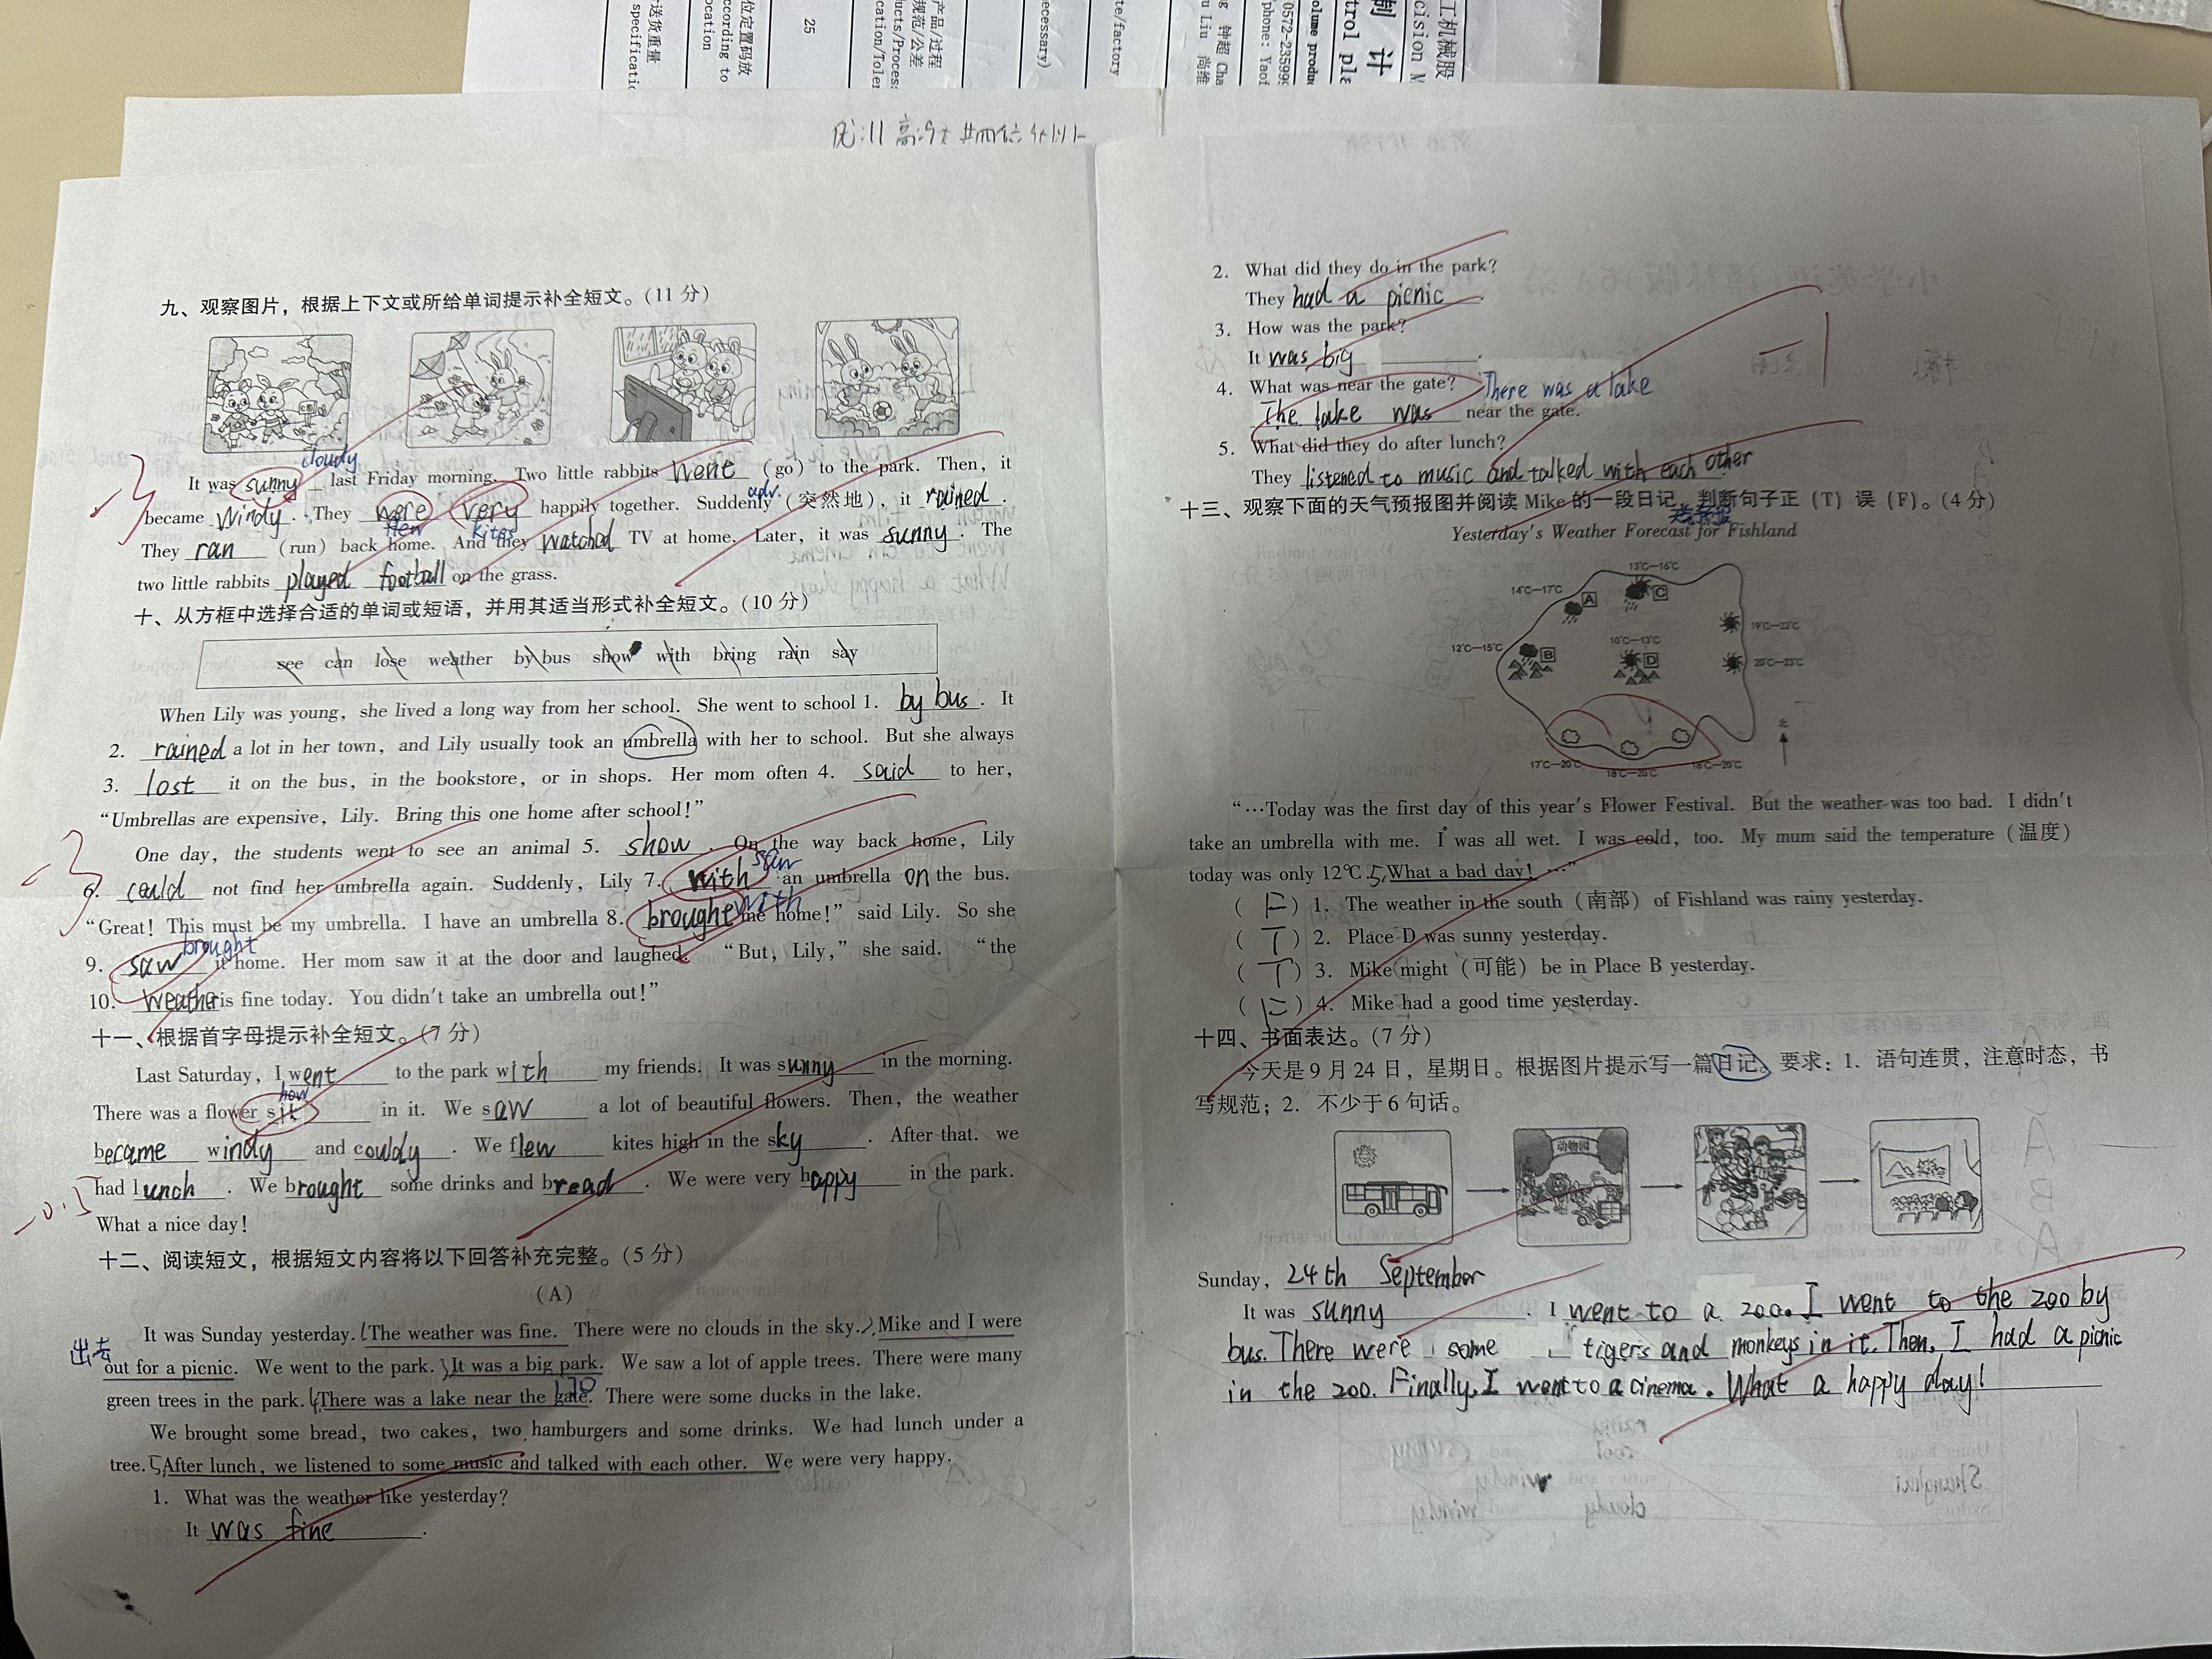 工机械股
cision M
制 计
trol pla
olume produ
0572-23599
phone: Yaof
钟超 Cha
u Liu 尚维
te/factory
ecessary)
产品/过程
规范/公差
ucts/Process
cation/Toler
25
位定置码放
ccording to
ocation
送货重量
specificatio
九、观察图片，根据上下文或所给单词提示补全短文。(11 分)
cloudy
It was sunny last Friday morning. Two little rabbits went (go) to the park. Then, it
adv.
became windy. They were very happily together. Suddenly (突然地), it rained.
flew kites
They ran (run) back home. And they watched TV at home. Later, it was sunny. The
two little rabbits played football on the grass.
十、从方框中选择合适的单词或短语，并用其适当形式补全短文。(10 分)
see can lose weather by bus show with bring rain say
When Lily was young, she lived a long way from her school. She went to school 1. by bus. It
2. rained a lot in her town, and Lily usually took an umbrella with her to school. But she always
3. lost it on the bus, in the bookstore, or in shops. Her mom often 4. said to her,
"Umbrellas are expensive, Lily. Bring this one home after school!"
-3
One day, the students went to see an animal 5. show. On the way back home, Lily
saw
6. could not find her umbrella again. Suddenly, Lily 7. with an umbrella on the bus.
with
"Great! This must be my umbrella. I have an umbrella 8. brought me home!" said Lily. So she
brought
9. saw it home. Her mom saw it at the door and laughed. "But, Lily," she said. "the
10. weather is fine today. You didn't take an umbrella out!"
十一、根据首字母提示补全短文。(7 分)
Last Saturday, I went to the park with my friends. It was sunny in the morning.
how
There was a flower sik in it. We saw a lot of beautiful flowers. Then, the weather
became windy and couldy. We flew kites high in the sky. After that. we
-0.5
had lunch. We brought some drinks and bread. We were very happy in the park.
What a nice day!
十二、阅读短文，根据短文内容将以下回答补充完整。(5 分)
(A)
It was Sunday yesterday. 1 The weather was fine. There were no clouds in the sky. 2 Mike and I were
出去
out for a picnic. We went to the park. 3 It was a big park. We saw a lot of apple trees. There were many
green trees in the park. 4 There was a lake near the gate. There were some ducks in the lake.
We brought some bread, two cakes, two hamburgers and some drinks. We had lunch under a
tree. 5 After lunch, we listened to some music and talked with each other. We were very happy.
1. What was the weather like yesterday?
It was fine.
2. What did they do in the park?
They had a picnic.
3. How was the park?
It was big.
-1
4. What was near the gate? There was a lake
The lake was near the gate.
5. What did they do after lunch?
They listened to music and talked with each other
十三、观察下面的天气预报图并阅读 Mike 的一段日记，判断句子正 (T) 误 (F)。(4 分)
Yesterday's Weather Forecast for Fishland
13℃—16℃
14℃—17℃ A C
19℃—22℃
12℃—15℃ B 10℃—13℃ D 20℃—23℃
北
17℃—20℃ 18℃—20℃ 18℃—20℃
"…Today was the first day of this year's Flower Festival. But the weather was too bad. I didn't
take an umbrella with me. I was all wet. I was cold, too. My mum said the temperature (温度)
today was only 12℃. 5 What a bad day! …"
( F ) 1. The weather in the south (南部) of Fishland was rainy yesterday.
( T ) 2. Place D was sunny yesterday.
( T ) 3. Mike might (可能) be in Place B yesterday.
( F ) 4. Mike had a good time yesterday.
十四、书面表达。(7 分)
今天是 9 月 24 日，星期日。根据图片提示写一篇日记。要求：1. 语句连贯，注意时态，书
写规范；2. 不少于 6 句话。
动物园
Sunday, 24th September
It was sunny. I went to a zoo. I went to the zoo by
bus. There were some tigers and monkeys in it. Then, I had a picnic
in the zoo. Finally, I went to a cinema. What a happy day!